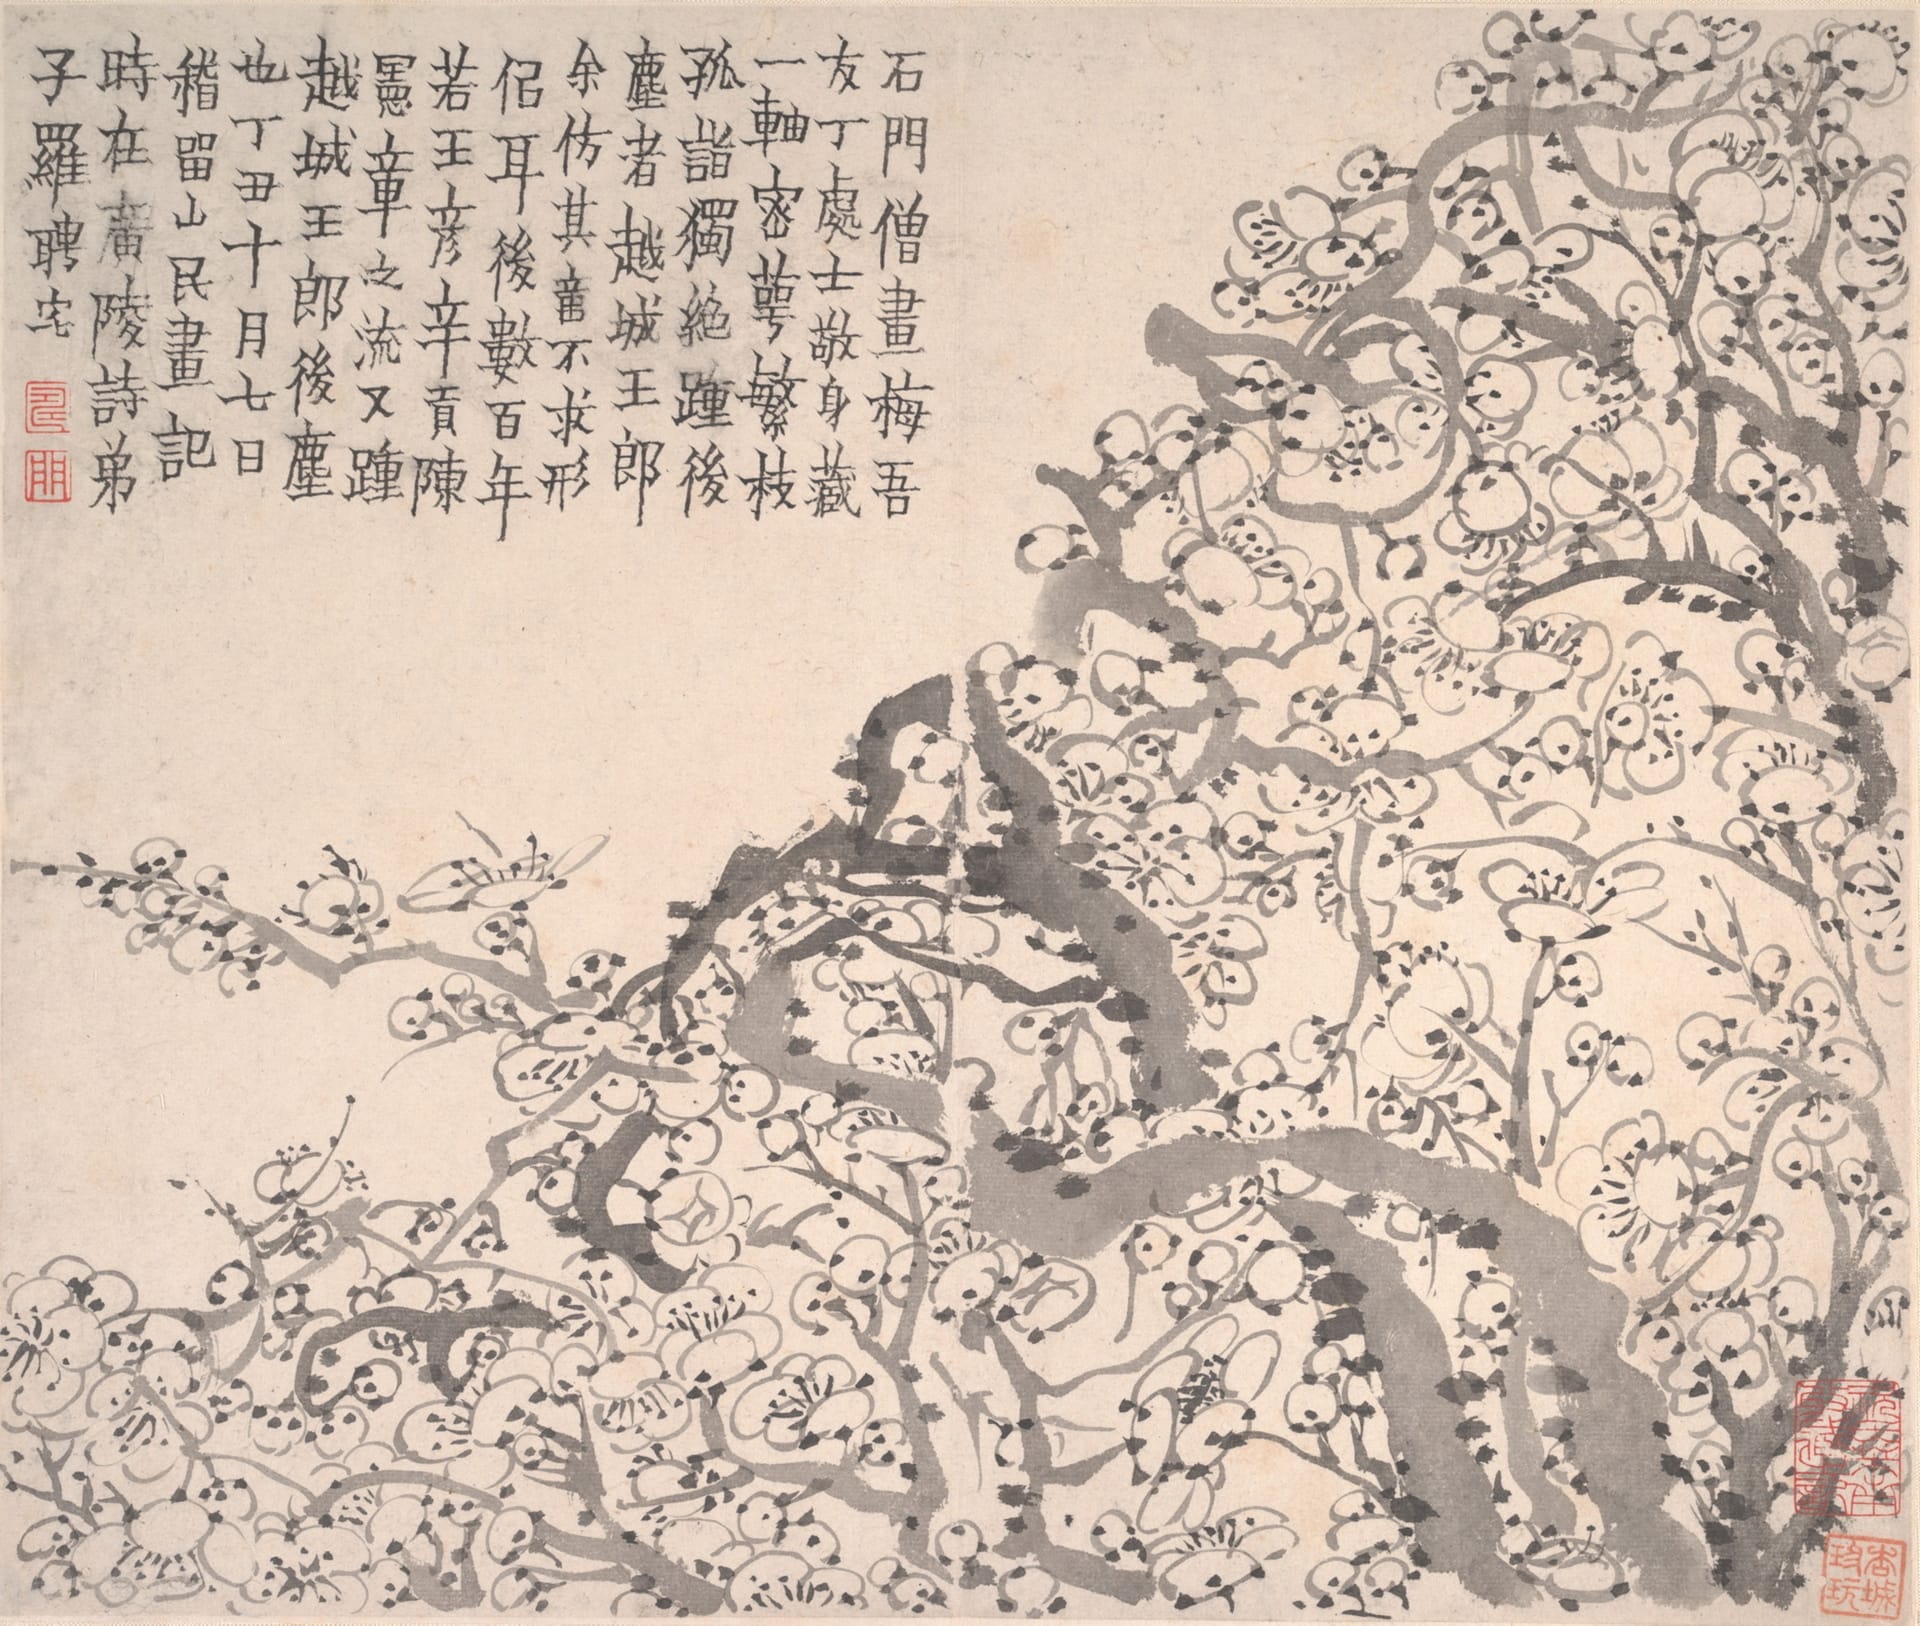 石門僧畫梅吾
友丁處士敬身藏
一軸密蕚繁枝
孤詣獨絶踵後
塵者越城王郎
余仿其意不求形
佀耳後數百年
若王彦辛貢陳
憲章之流又踵
越城王郎後塵
也丁丑十月七日
稽留山民畫記
時在廣陵詩弟
子羅聘宅
杏城
玫玩